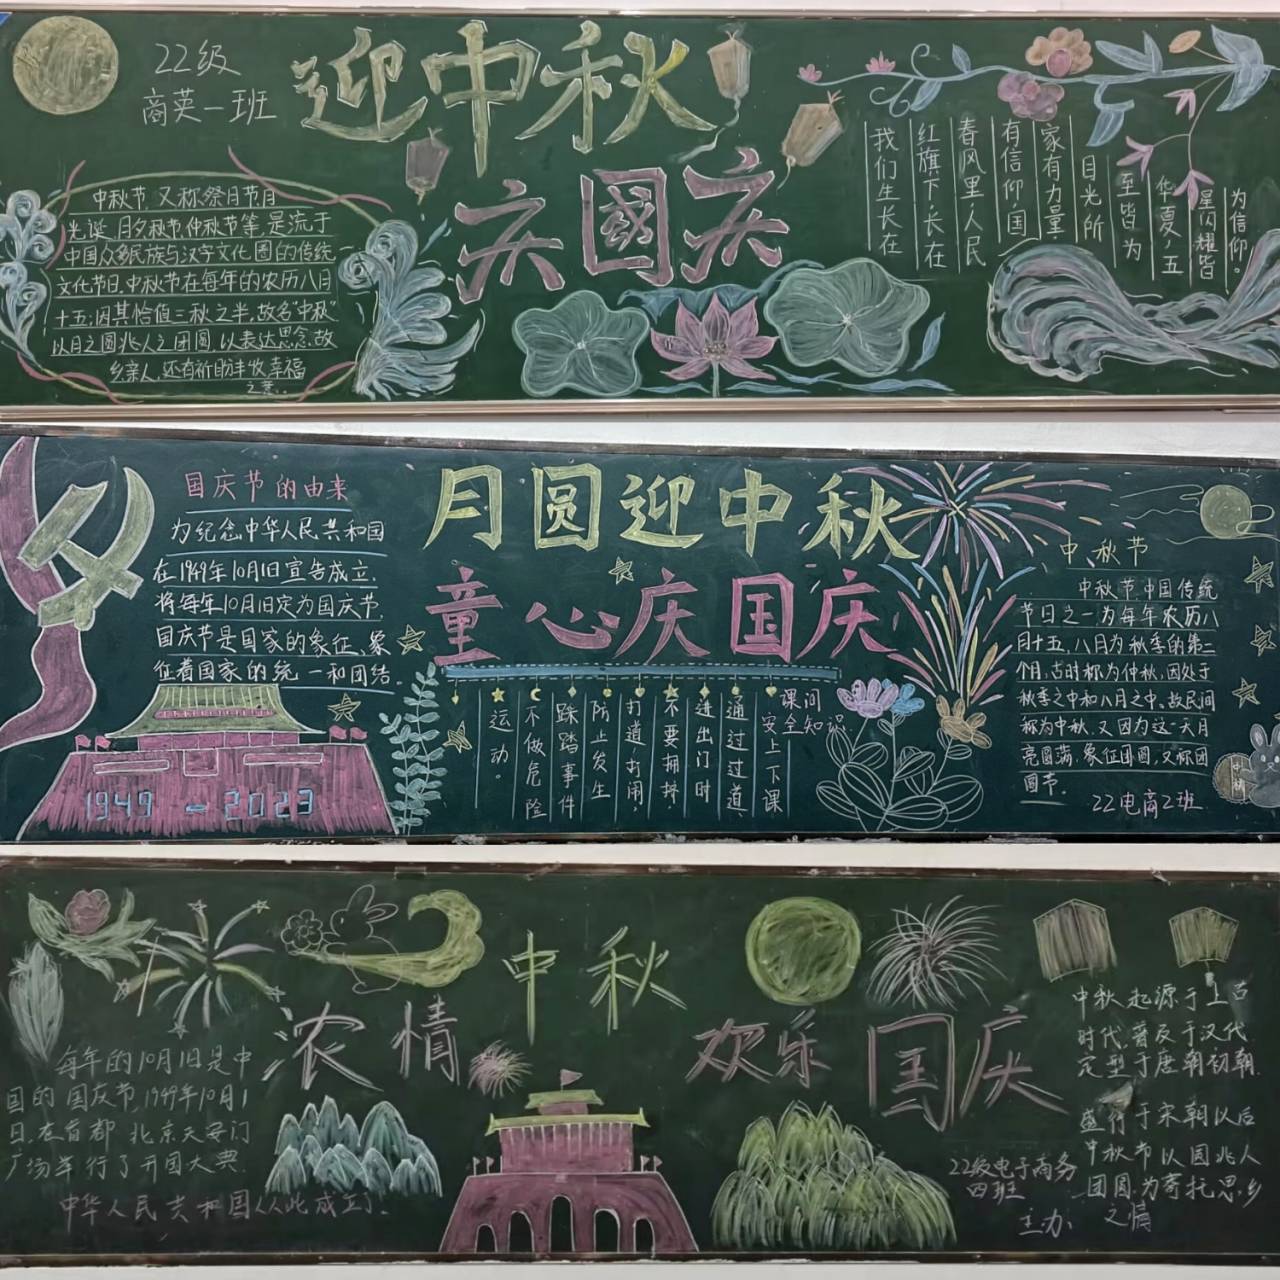 22级
商英一班
迎中秋
庆國庆
中秋节,又称祭月节月
光诞、月夕、秋节、仲秋节等,是流于
中国众多民族与汉字文化圈的传统
文化节日,中秋节在每年的农历八月
十五;因其恰值三秋之半,故名"中秋"
以月之圆兆人之团圆,以表达思念故
乡亲人,还有祈盼丰收幸福
之意。
我们生长在
红旗下,长在
春风里,人民
有信仰,国
家有力量
目光所
至皆为
华夏,五
星闪耀皆
为信仰。
国庆节的由来
为纪念中华人民共和国
在1949年10月1日宣告成立,
将每年10月1日定为国庆节,
国庆节是国家的象征、象
征着国家的统一和团结。
1949-2023
月圆迎中秋
童心庆国庆
课间
安全知识
安上下课
通过过道
进出门时
不要拥挤
打道打闹
防止发生
踩踏事件
不做危险
运动。
中秋节
中秋节,中国传统
节日之一,为每年农历八
月十五,八月为秋季的第二
个月,古时称为仲秋,因处于
秋季之中和八月之中,故民间
称为中秋,又因为这一天月
亮圆满,象征团圆,又称团
圆节。
22电商2班
中秋
浓情
欢乐国庆
每年的10月1日是中
国的国庆节,1949年10月1
日,在首都北京天安门
广场举行了开国大典,
中华人民共和国从此成立了。
中秋起源于上古
时代,普及于汉代
定型于唐朝初朝
盛行于宋朝以后
中秋节以圆兆人
团圆,为寄托思乡
之情
22级电子商务
四班
主办